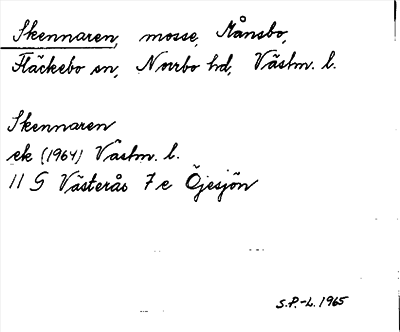 Skennaren, mosse, Månsbo,
Fläckebo sn, Norrbo hd, Västm. l.
Skennaren
ek (1964) Västm. l.
11 G Västerås 7 e Öjesjön
S.P.-L. 1965